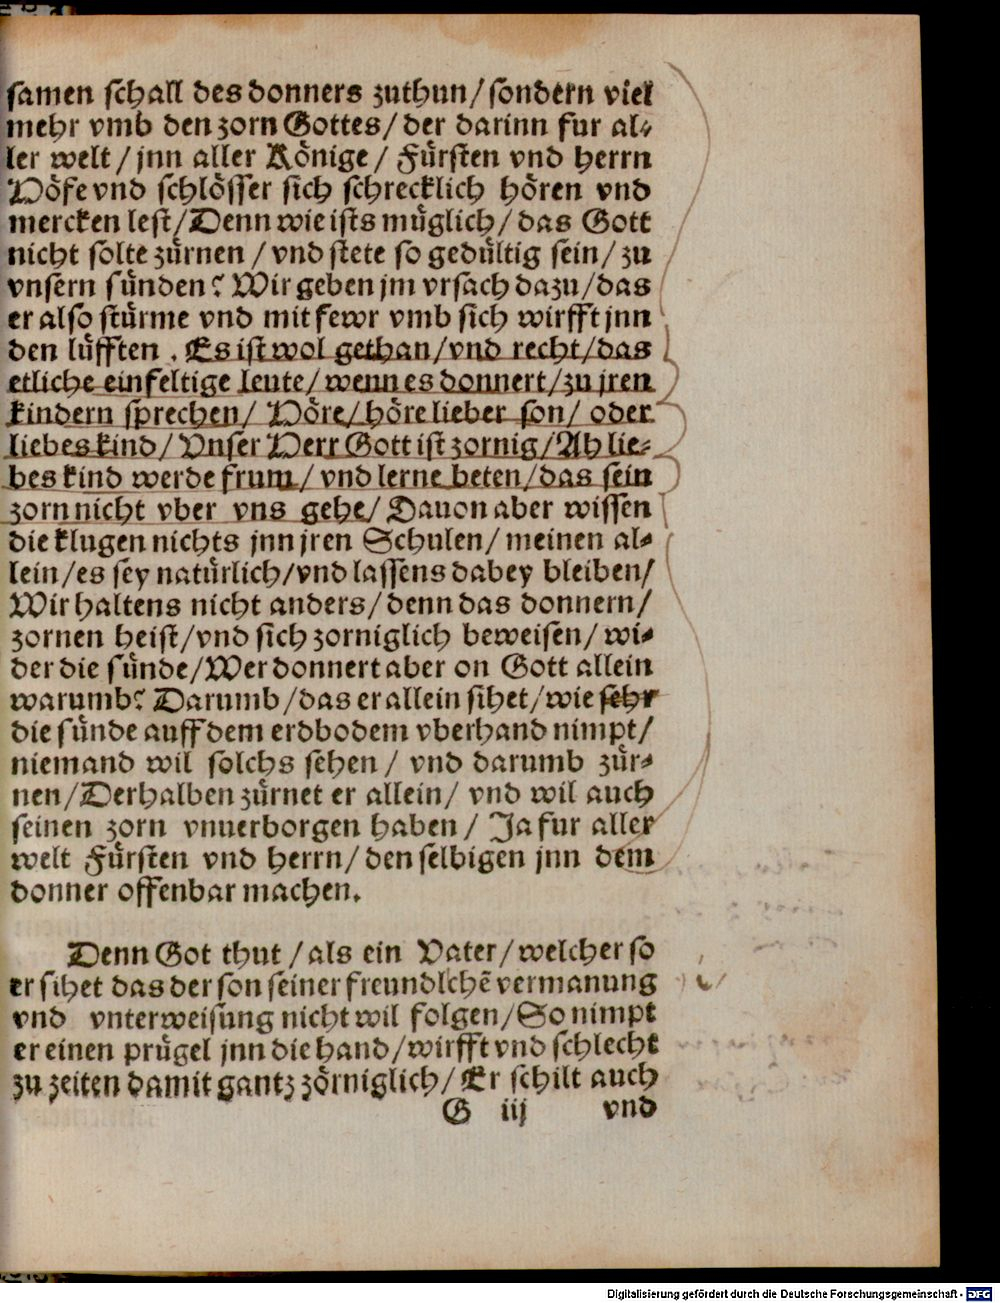 samen schall des donners zuthun/sondern viel
mehr vmb den zorn Gottes/der darinn fur al⸗
ler welt/jnn aller Könige/Fürsten vnd herrn
Höfe vnd schlösser sich schrecklich hören vnd
mercken lest/Denn wie ists müglich/das Gott
nicht solte zürnen/vnd stete so gedültig sein/zu
vnsern sünden? Wir geben jm vrsach dazu/das
er also stürme vnd mit fewr vmb sich wirfft jnn
den lüfften. Es ist wol gethan/vnd recht/das
etliche einfeltige leute/wenn es donnert/zu jren
kindern sprechen/Höre/höre lieber son/oder
liebes kind/Vnser Herr Gott ist zornig/Ah lie⸗
bes kind werde frum/vnd lerne beten/das sein
zorn nicht vber vns gehe/Dauon aber wissen
die klugen nichts jnn jren Schulen/meinen al⸗
lein/es sey natürlich/vnd lassens dabey bleiben/
Wir haltens nicht anders/denn das donnern/
zornen heist/vnd sich zorniglich beweisen/wi⸗
der die sünde/Wer donnert aber on Gott allein
warumb? Darumb/das er allein sihet/wie sehr
die sünde auff dem erdbodem vberhand nimpt/
niemand wil solchs sehen/vnd darumb zür⸗
nen/Derhalben zürnet er allein/vnd wil auch
seinen zorn vnuerborgen haben/Ja fur aller
welt Fürsten vnd herrn/den selbigen jnn dem
donner offenbar machen.
Denn Got thut/als ein Vater/welcher so
er sihet das der son seiner freundlchē vermanung
vnd vnterweisung nicht wil folgen/So nimpt
er einen prügel jnn die hand/wirfft vnd schlecht
zu zeiten damit gantz zörniglich/Er schilt auch
G iij vnd
Digitalisierung gefördert durch die Deutsche Forschungsgemeinschaft - DFG